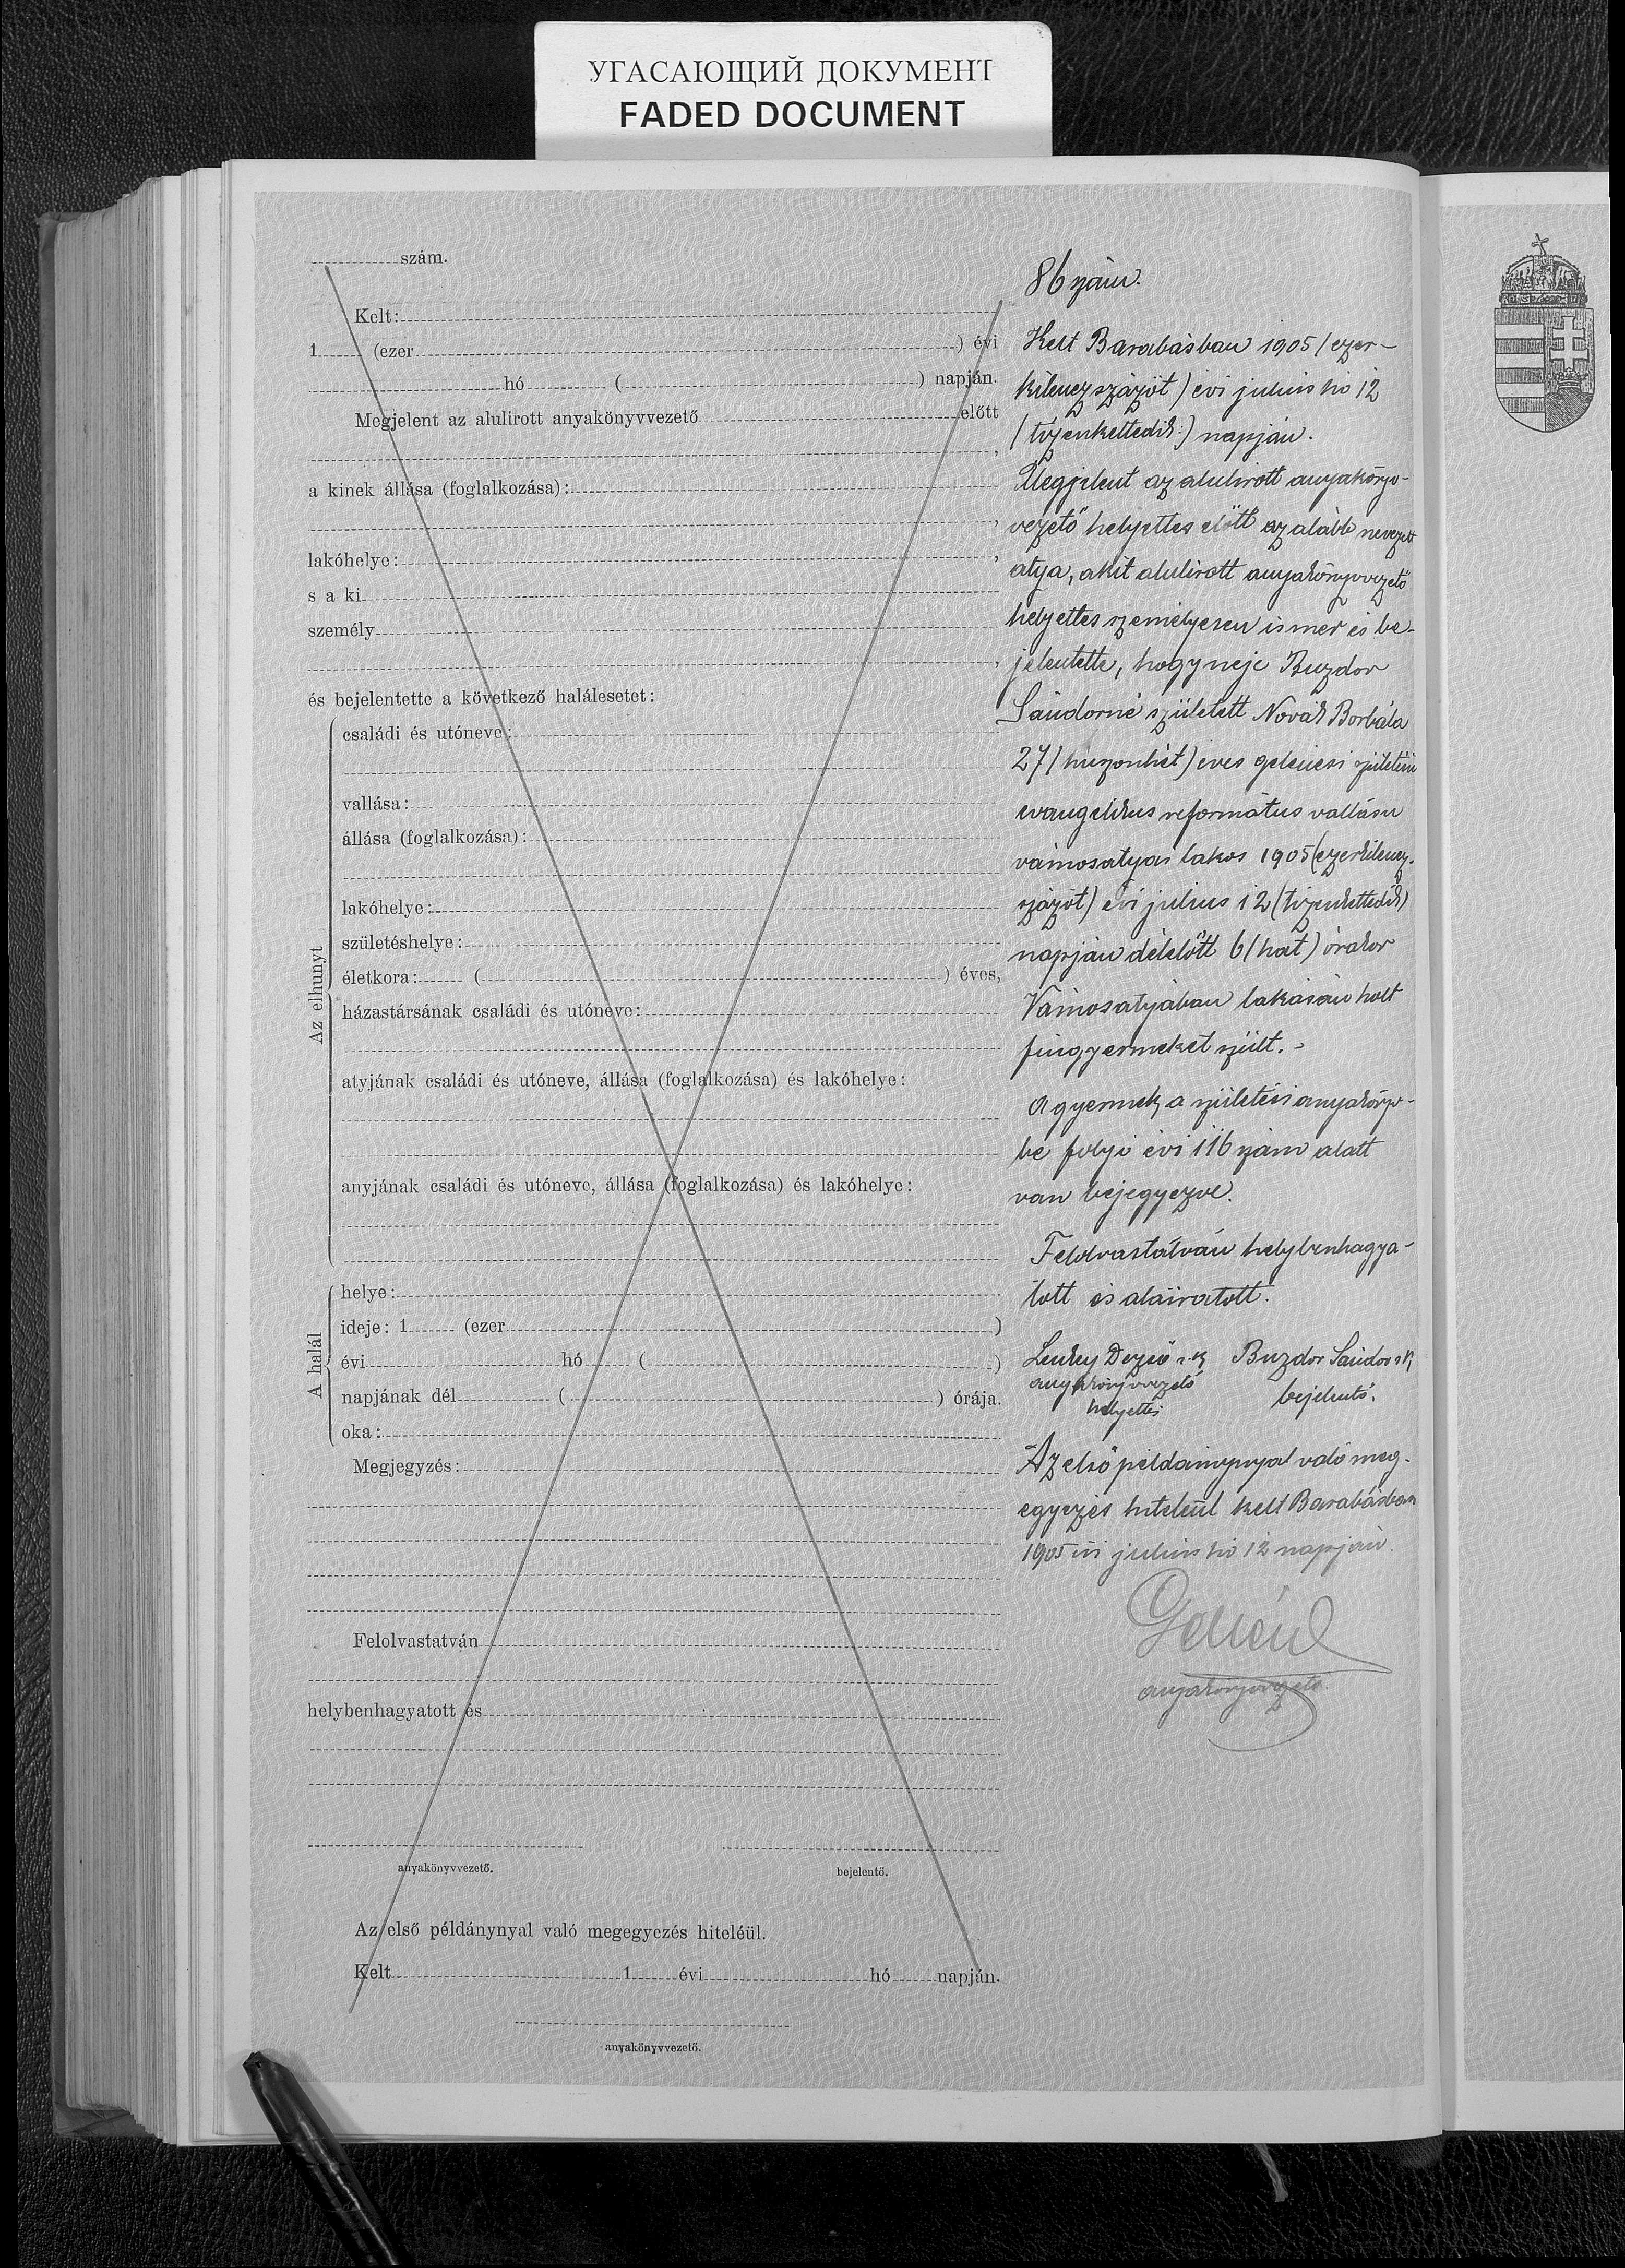 УГАСАЮЩИЙ ДОКУМЕНТ
FADED DOCUMENT
szám.
Kelt:
1 (ezer ) évi
hó ( ) napján.
Megjelent az alulirott anyakönyvvezető előtt
,
a kinek állása (foglalkozása):
,
lakóhelye: ,
s a ki
személy
,
és bejelentette a következő halálesetet:
Az elhunyt
családi és utóneve:
vallása:
állása (foglalkozása):
lakóhelye:
születéshelye:
életkora: ( ) éves,
házastársának családi és utóneve:
atyjának családi és utóneve, állása (foglalkozása) és lakóhelye:
anyjának családi és utóneve, állása (foglalkozása) és lakóhelye:
A halál
helye:
ideje: 1 (ezer )
évi hó ( )
napjának dél ( ) órája.
oka:
Megjegyzés:
Felolvastatván
helybenhagyatott és
anyakönyvvezető. bejelentő.
Az első példánynyal való megegyezés hiteléül.
Kelt 1 évi hó napján.
anyakönyvvezető.
86 szám.
Kelt Barabásban 1905 (ezer-
kilenczszázöt) évi julius hó 12
(tizenkettedik) napján.
Megjelent az alulirott anyakönyv-
vezető helyettes előtt az alább nevezett
atya, akit alulirott anyakönyvvezető
helyettes személyesen ismer és be-
jelentette, hogy neje Buzdor
Sándorné született Novák Borbála
27 (huszonhét) éves gelénesi születésü
evangelikus református vallásu
vámosatyai lakos 1905 (ezerkilencz-
százöt) évi julius 12 (tizenkettedik)
napján délelőtt 6 (hat) órakor
Vámosatyában lakásán holt
fiugyermeket szült.
A gyermek a születési anyakönyv-
be folyó évi 116 szám alatt
van bejegyezve.
Felolvastatván helybenhagya-
tott és aláiratott.
Dezső s.k. Buzdor Sándor s.k.
anyakönyvvezető bejelentő.
helyettes
Az első példánynyal való meg-
egyezés hiteléül kelt Barabásban
1905 évi julius hó 12 napján.
anyakönyvvezető.